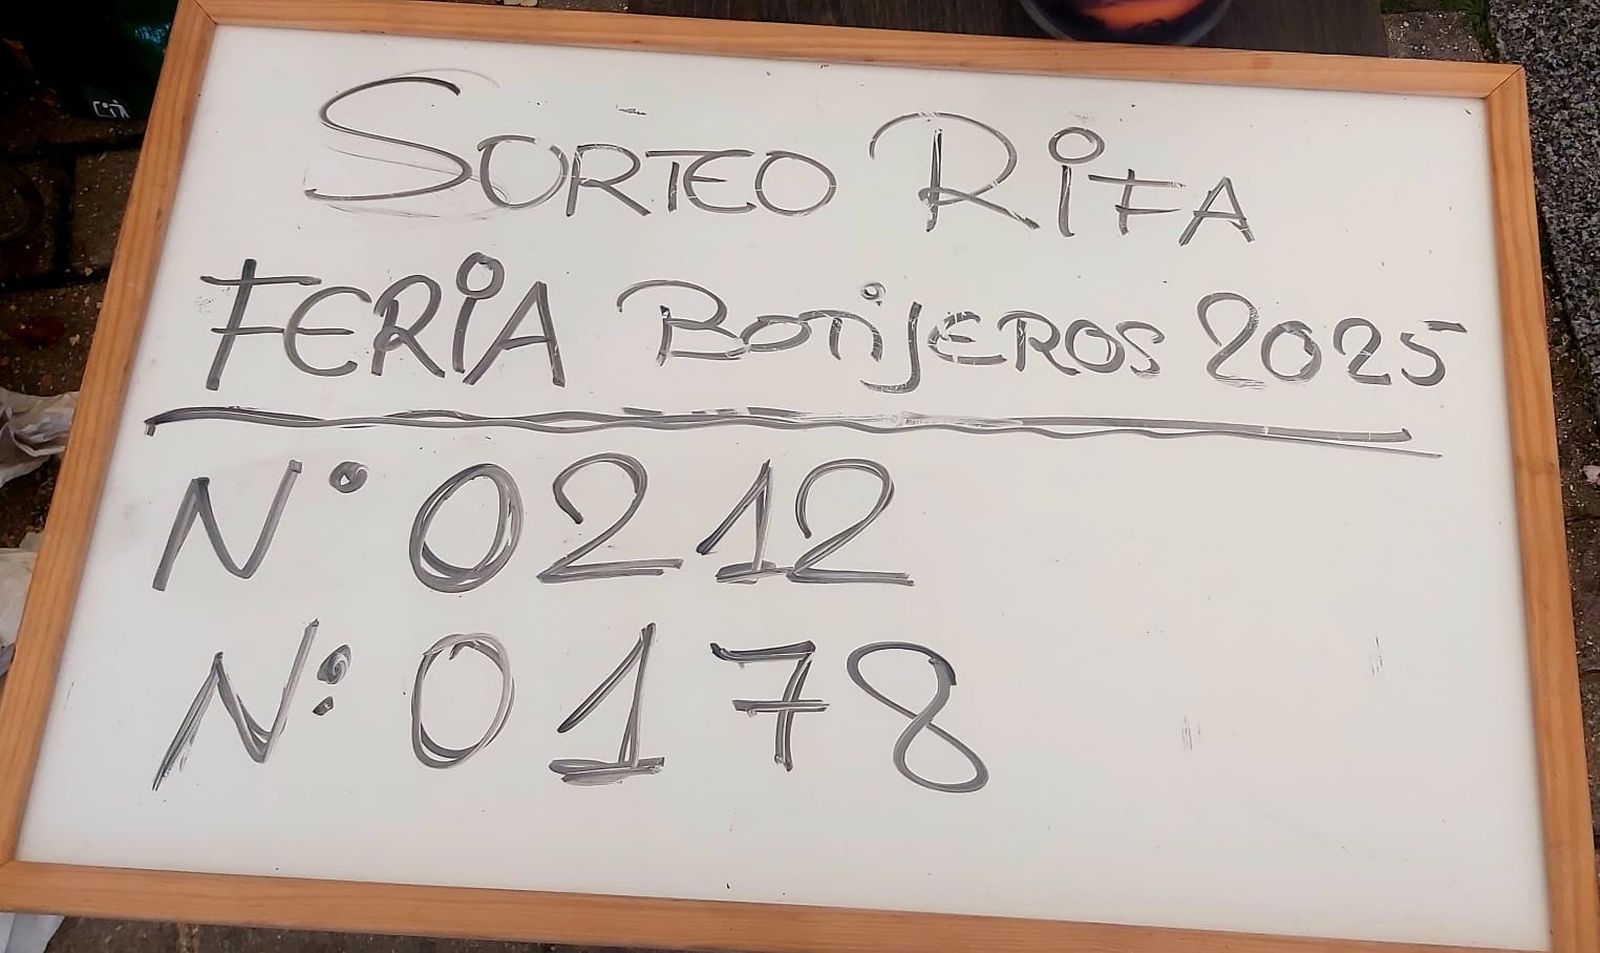 SORTEO RiFA
FERiA BOTiJEROS 2025
N° 0212
N° 0178